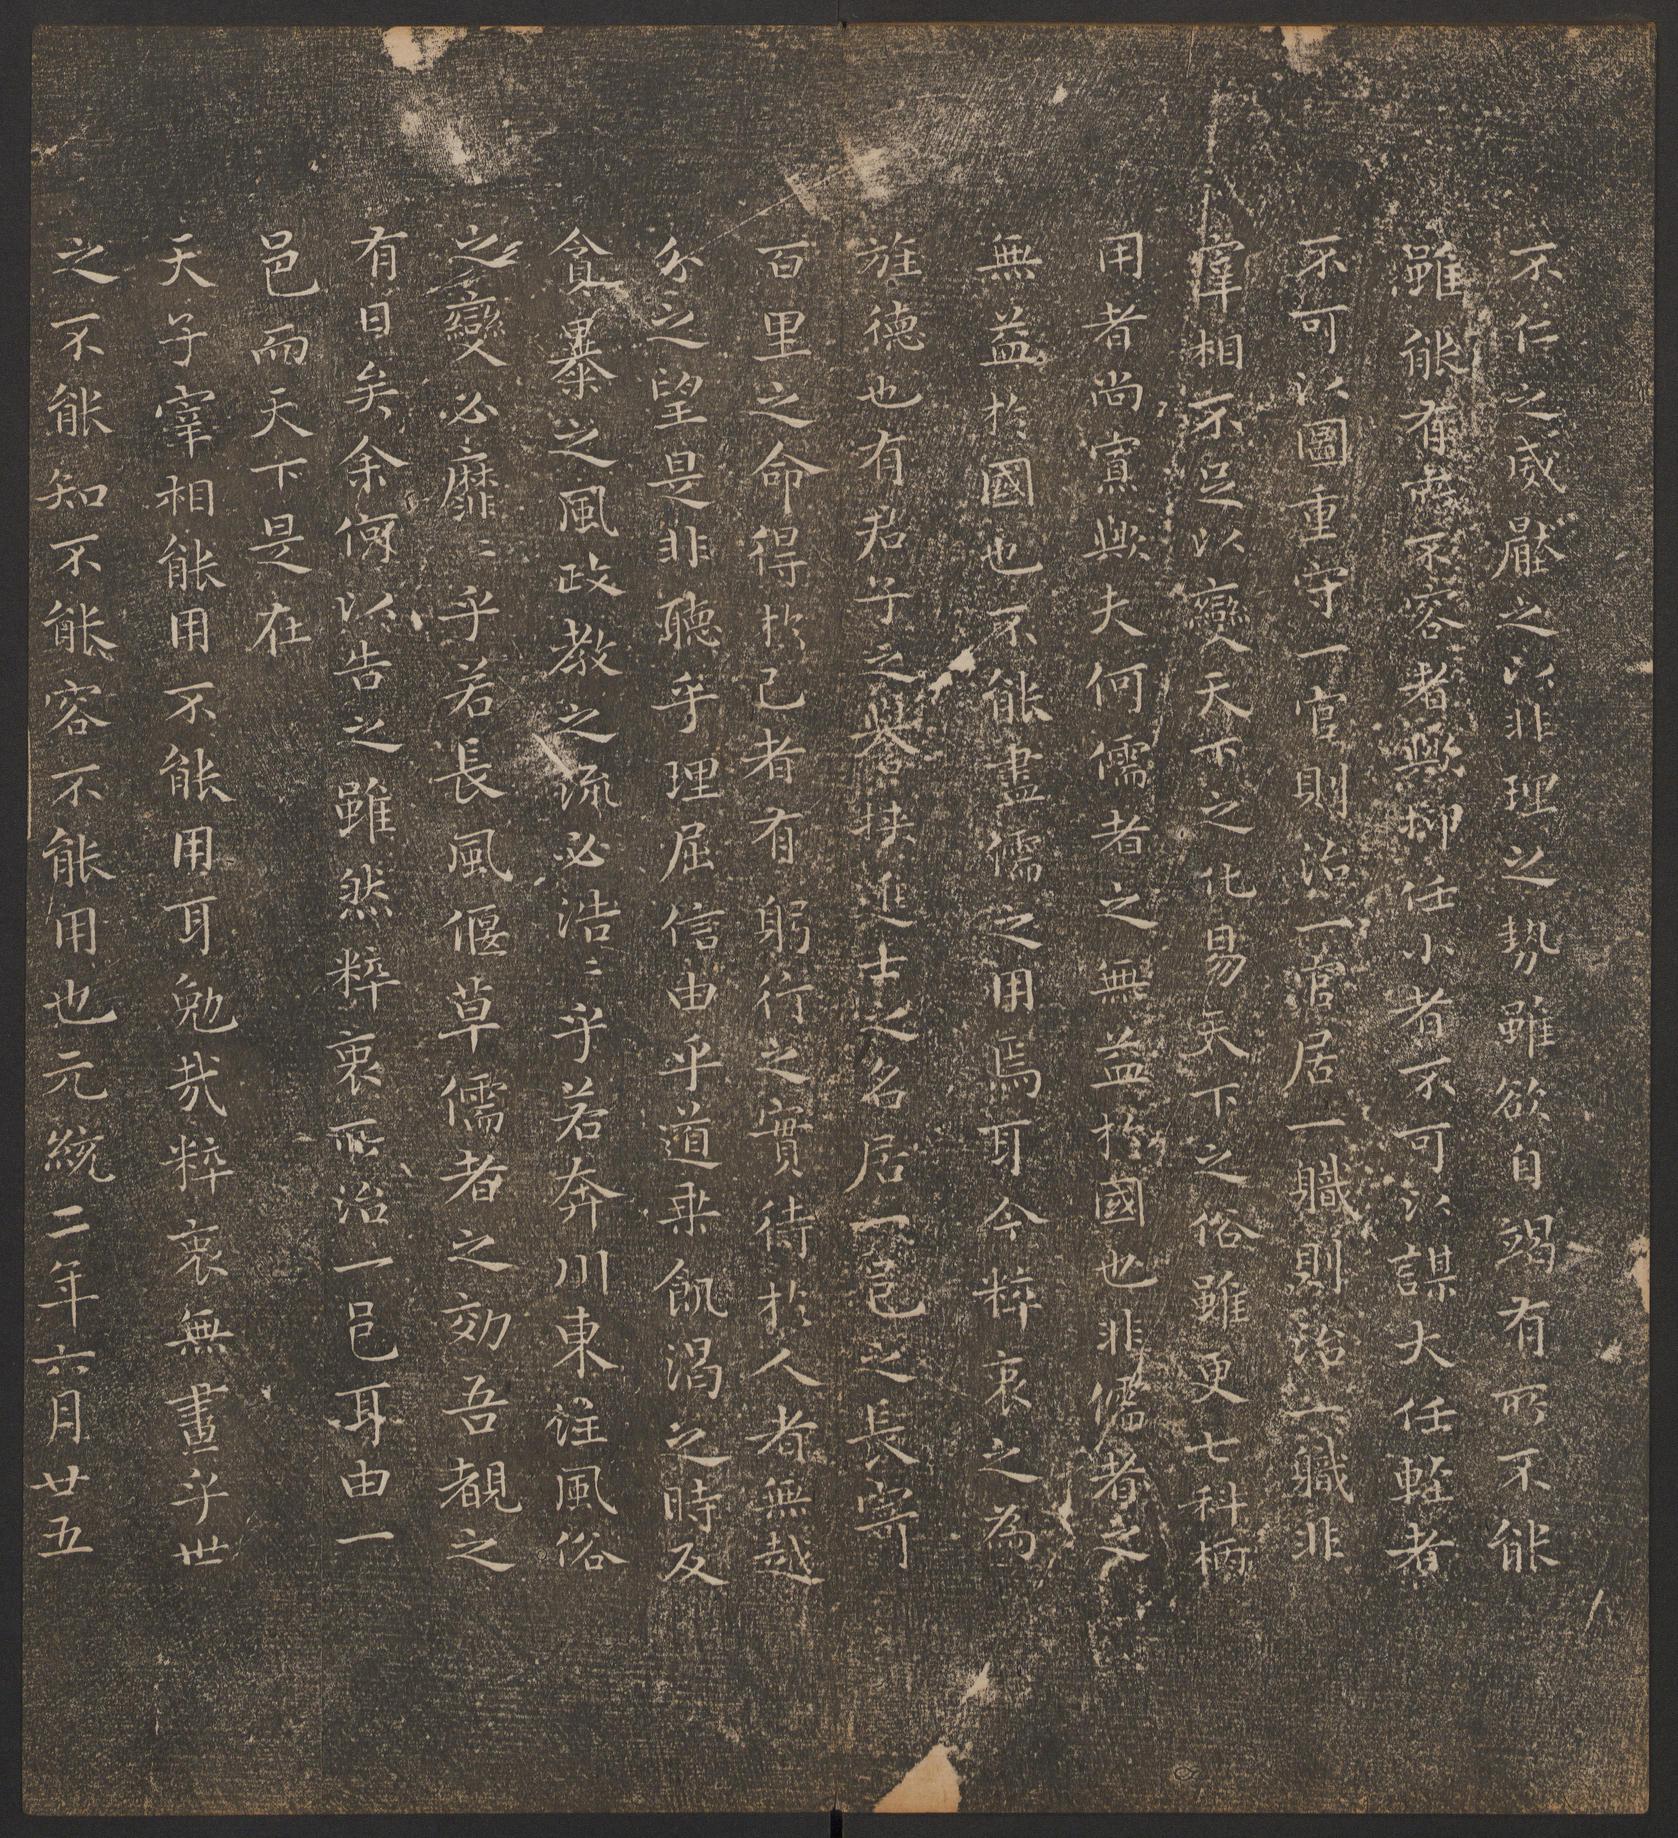 不仁之威壓之以非理之勢雖欲自竭有所不能
雖能有不容者歟抑任小者不可以謀大任輕者
不可以圖重守一官則治一官居一職則治一職非
宰相不足以變天下之化易天下之俗雖更七科柄
用者尚寡歟夫何儒者之無益於國也非儒者之
無益於國也不能盡儒之用焉耳今粹衷之為
旌德也有君子之譽挾進士之名居一邑之長寄
百里之命得於己者有躬行之實待於人者無越
分之望是非聽乎理屈信由乎道乗飢渴之時反
貪暴之風政教之流必浩〻乎若奔川東注風俗
之變必靡〻乎若長風偃草儒者之効吾覩之
有日矣余何以告之雖然粹衷所治一邑耳由一
邑而天下是在
天子宰相能用不能用耳勉哉粹衷無畫乎世
之不能知不能容不能用也元統二年六月廿五